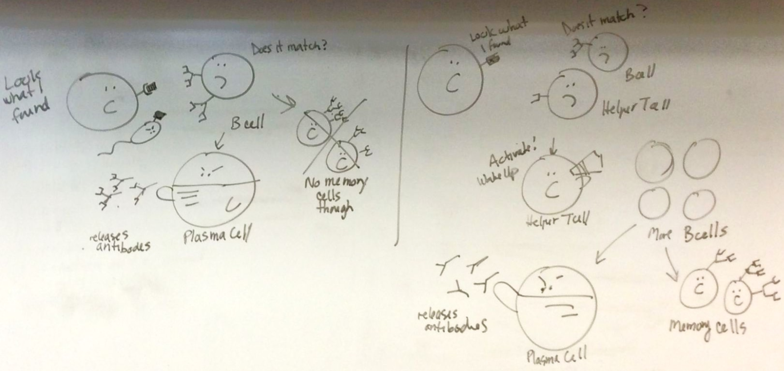 Look
what I
found
Does it match?
B cell
No memory
cells
though
releases
antibodies
Plasma Cell
Look what
I found
Does it match?
Bcell
Helper Tcell
Activate!
Wake Up
Helper Tcell
More Bcells
releases
antibodies
Plasma Cell
Memory cells